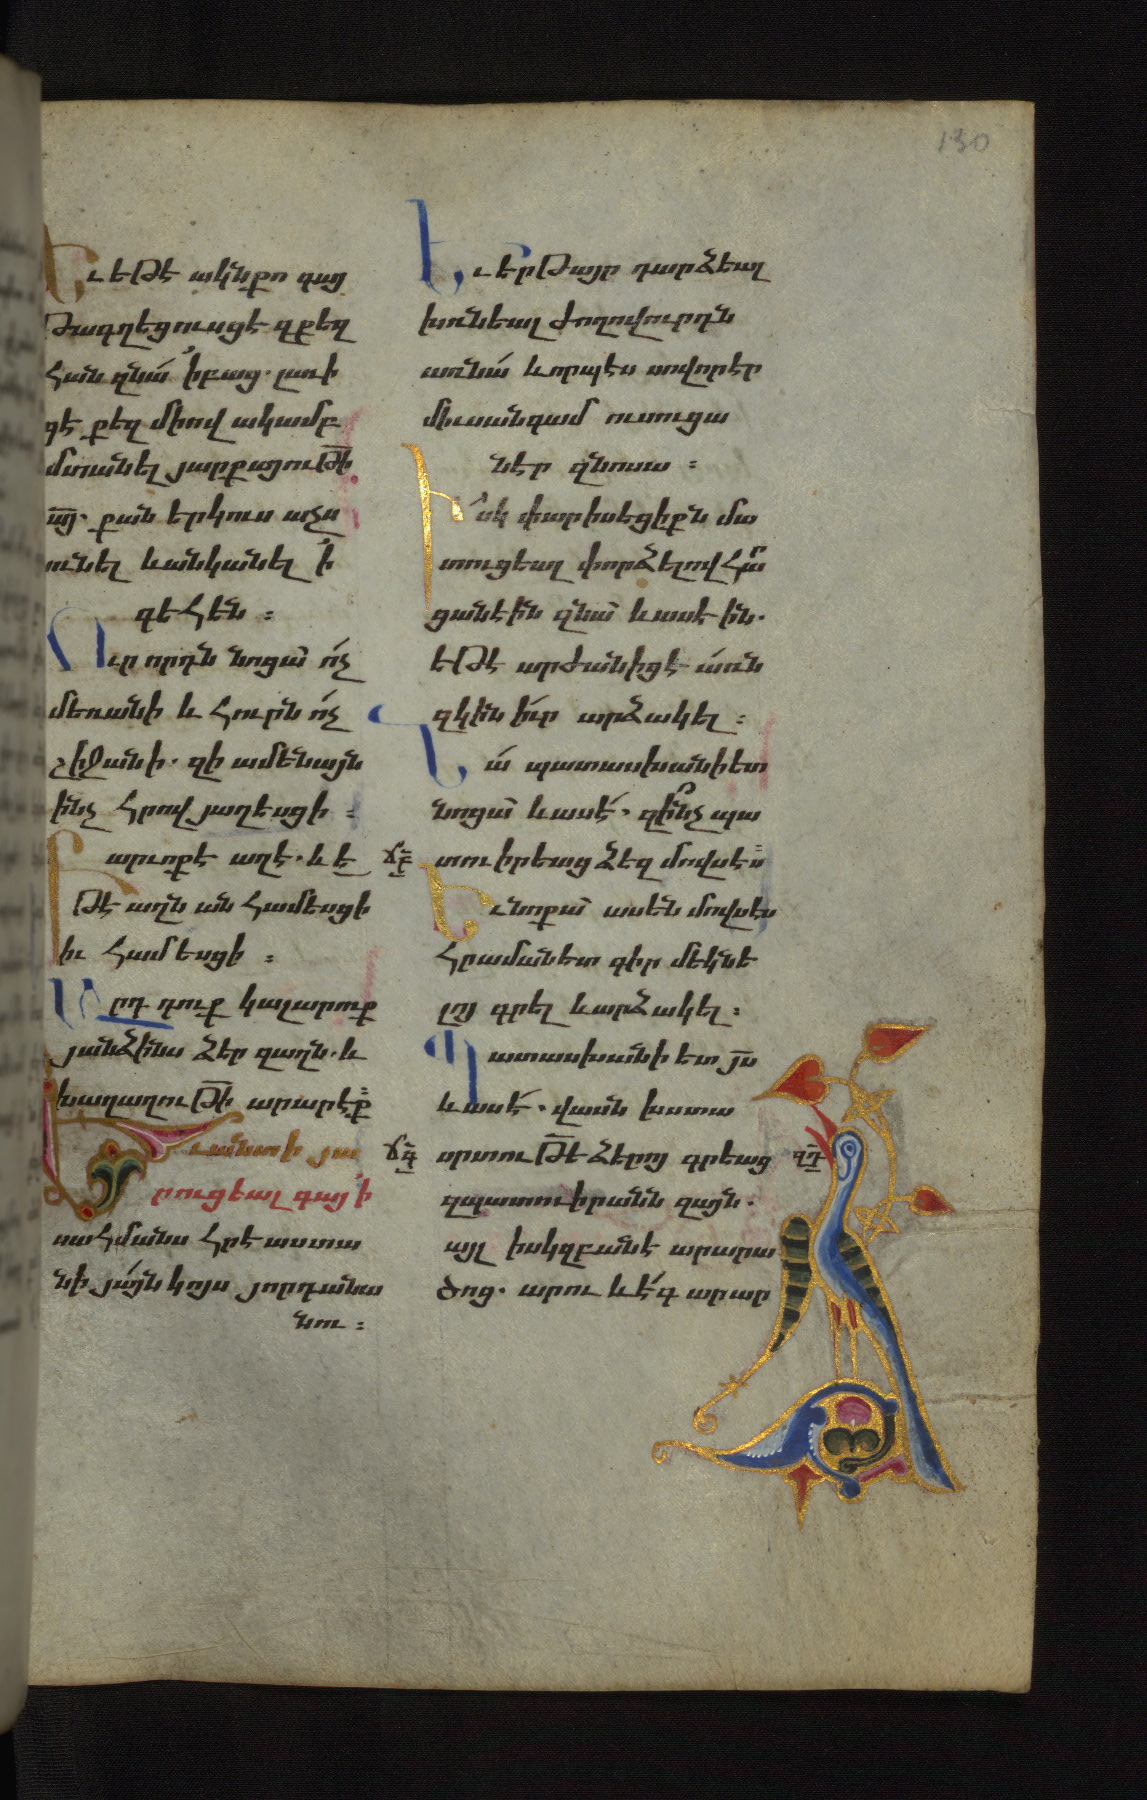 130
Եւ եթէ ակն քո գայ
թագղեցուսցէ զքեզ
հան զնա՛ ի բաց. լաւի
ցէ քեզ միով ակամբ
մտանել յարքայութի
այ. քան երկուս աչս
ունել և անկանել ի
գեհեն :
Ուր որդն նոցա ո՛չ
մեռանի և հուրն ո՛չ
շիջանի. զի ամենայն
ինչ հրով յաղեսցի :
Բարւոք է աղէ. և ե
թէ աղն ան համեսցի
իւ համեսցի :
Արդ դուք կալարուք
յանձինս ձեր զաղն. և
խաղաղութի արարէք
Եւ անտի յա
րուցեալ գայ ի
սահմանս հրէաստա
նի յայն կոյս յորդանա
նու :
Եւ երթայր դարձեալ
խռնեալ ժողովուրդն
առ նա՛ և որպէս սովոր էր
միւսանգամ ուսուցա
նէր զնոսա :
Իսկ փարիսեցիքն մա
տուցեալ փորձելով հա՞ր
ցանէին զնա և ասէին.
եթէ արժան իցէ առն
զկին իւր արձակել :
Նա՛ պատասխանի ետ
նոցա և ասէ. զի՞նչ պա
ճբ
տուիրեաց ձեզ մովսէս
Եւ նոքա ասեն մովսէս
հրամանետ գիր մեկնե
լոյ գրել և արձակել :
Պատասխանի ետ յս
և ասէ. վասն խստա
ճգ
սրտութե ձերոյ գրեաց
զդ
զպատուիրանն զայն.
այլ ի սկզբանէ արարա
ծոց. արու և է՛գ արար